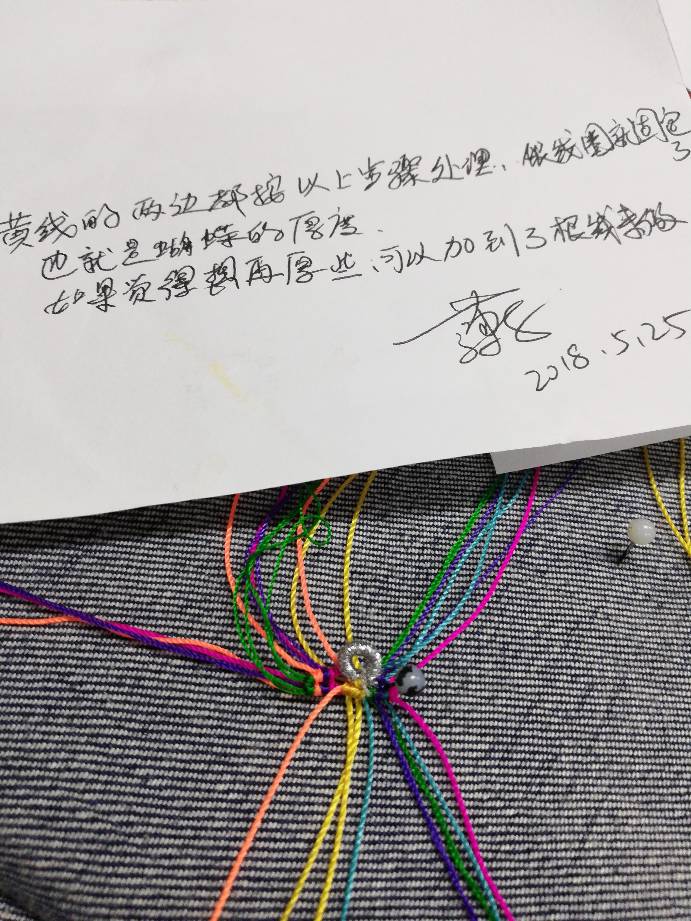 黄线的两边都按以上步骤处理、银线圈就固定了
也就是蝴蝶的厚度.
如果觉得想再厚些、可以加到3根线来做
2018.5.25